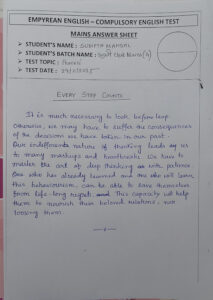 EMPYREAN ENGLISH – COMPULSORY ENGLISH TEST
MAINS ANSWER SHEET
➤ STUDENT'S NAME : SUSMITA MANDAL
➤ STUDENT'S BATCH NAME :
➤ TEST TOPIC :
➤ TEST DATE :
EVERY STEP COUNTS
It is much necessary to look before leap.
Otherwise, we may have to suffer the consequences
of the decisions we have taken in our past.
Our indifferent nature of thinking leads us
to many mishaps and heartbreaks. We have to
master the art of deep thinking with patience.
One who has already learned and one who will learn
this behaviourism, can be able to save themselves
from life-long regret and this capacity will help
them to nourish their beloved relations, not
loosing them.